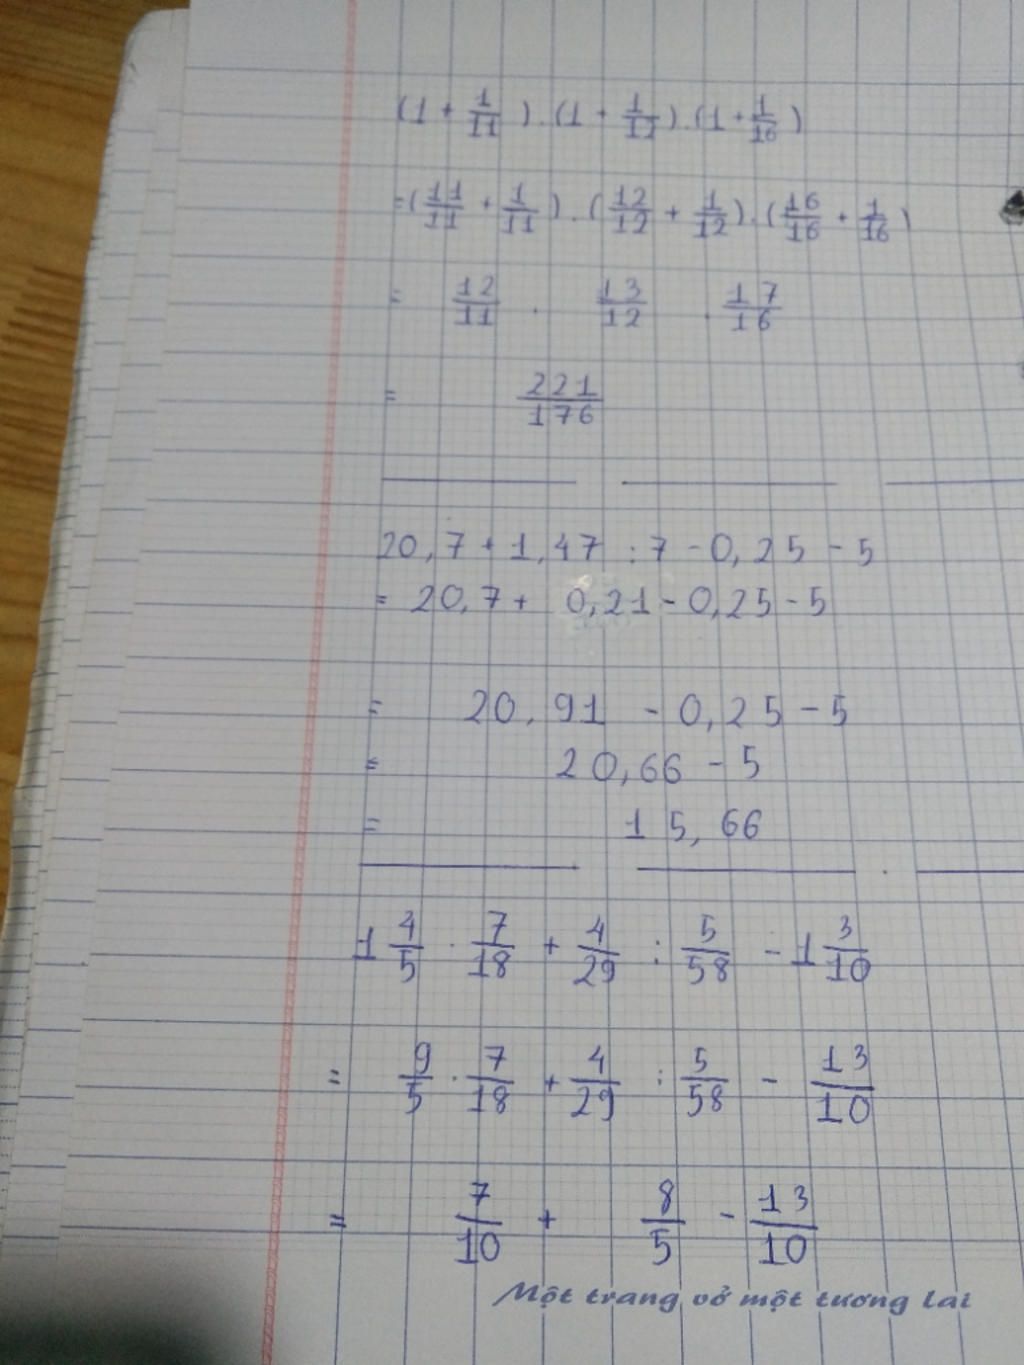 (1 + 1/11) . (1 + 1/11) . (1 + 1/16)
= (11/11 + 1/11) . (12/12 + 1/12) . (16/16 + 1/16)
= 12/11 . 13/12 . 17/16
= 221/176
20,7 + 1,47 : 7 - 0,25 - 5
= 20,7 + 0,21 - 0,25 - 5
= 20,91 - 0,25 - 5
= 20,66 - 5
= 15,66
1 4/5 . 7/18 + 4/29 : 5/58 - 1 3/10
= 9/5 . 7/18 + 4/29 : 5/58 - 13/10
= 7/10 + 8/5 - 13/10
Một trang vở một tương lai